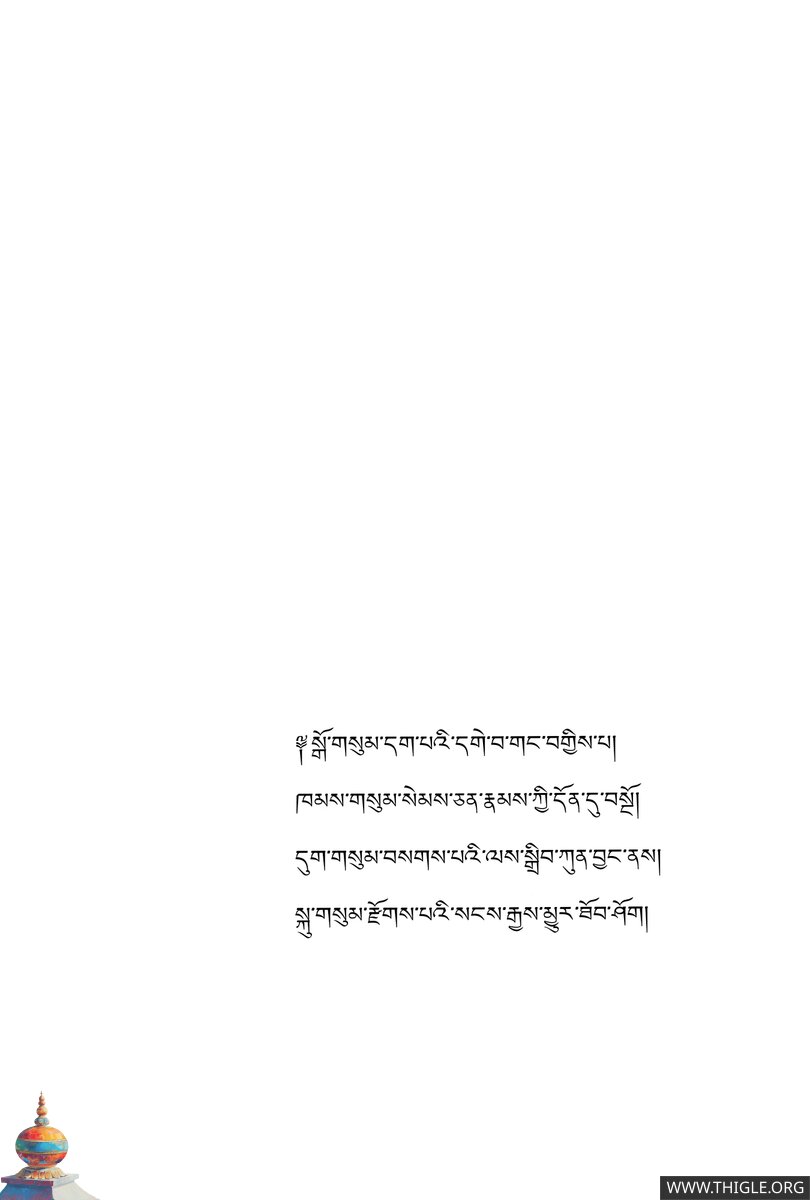 ༈ སྒོ་གསུམ་དག་པའི་དགེ་བ་གང་བགྱིས་པ།
ཁམས་གསུམ་སེམས་ཅན་རྣམས་ཀྱི་དོན་དུ་བསྔོ།
དུག་གསུམ་བསགས་པའི་ལས་སྒྲིབ་ཀུན་བྱང་ནས།
སྐུ་གསུམ་རྫོགས་པའི་སངས་རྒྱས་མྱུར་ཐོབ་ཤོག།
WWW.THIGLE.ORG